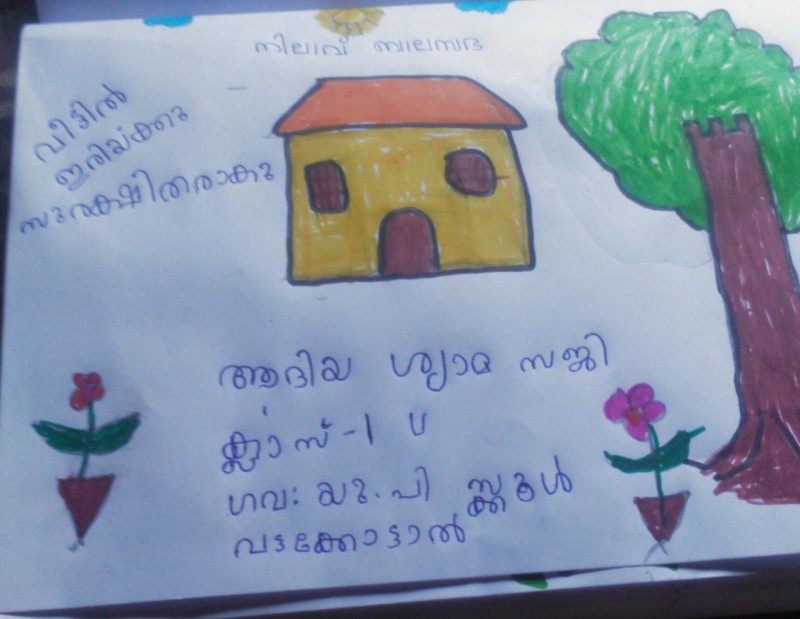 നിലാവ് ബാലസഭ
വീട്ടിൽ
ഇരിയ്ക്കൂ
സുരക്ഷിതരാകൂ
ആദിയ ശ്യാമ സജി
ക്ലാസ് -1
ഗവ: യു.പി സ്കൂൾ
വടക്കോട്ടാൽ